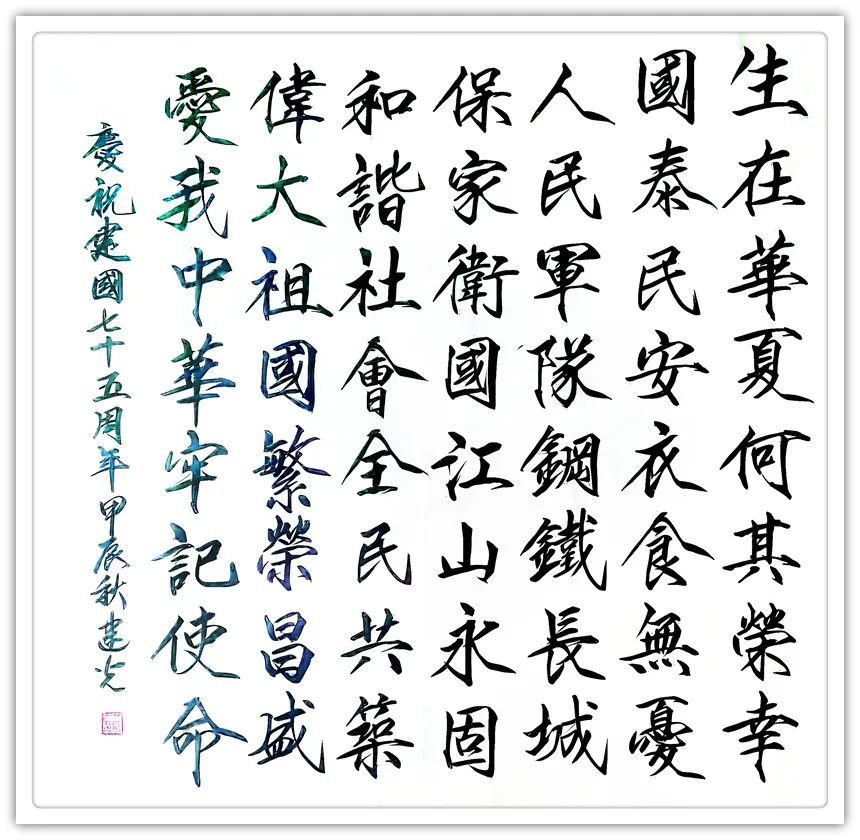 生在華夏何其榮幸
國泰民安衣食無憂
人民軍隊鋼鐵長城
保家衛國江山永固
和諧社會全民共築
偉大祖國繁榮昌盛
愛我中華牢記使命
慶祝建國七十五周年甲辰秋建光